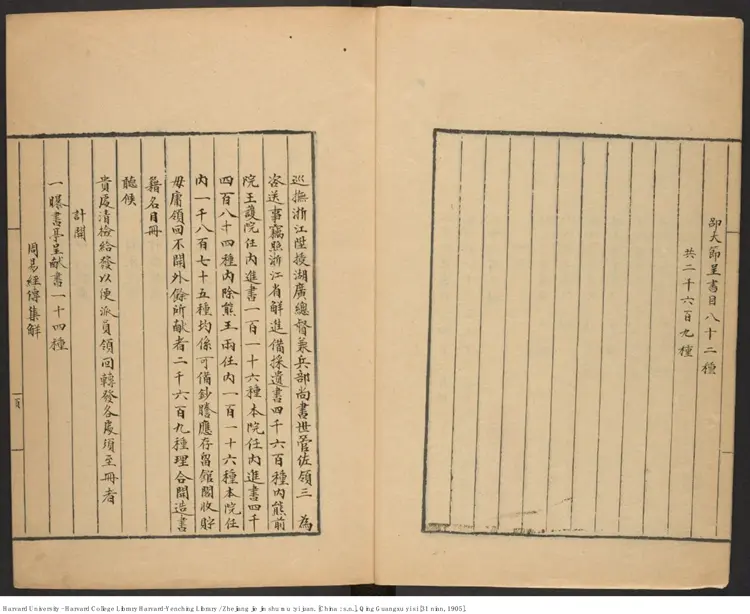 邵大節呈書目八十二種
共二千六百九種
巡撫浙江陞授湖廣總督兼兵部尚書世管佐領三 為
咨送事竊照浙江省解進備採遺書四千六百種內熊前
院王護院任內進書一百一十六種本院任內進書四千
四百八十四種內除熊王兩任內一百一十六種本院任
內一千八百七十五種均係可備鈔謄應存留館閣收貯
毋庸領回不開外餘所獻者二千六百九種理合開造書
籍名目冊
聽候
貴處清檢給發以便派員領回轉發各處須至冊者
計開
一曝書亭呈獻書一十四種
周易經傳集解
頁
Harvard University - Harvard College Library Harvard-Yenching Library / Zhejiang jie jin shu mu : yi juan. [China : s.n.], Qing Guangxu yisi [31 nian, 1905].